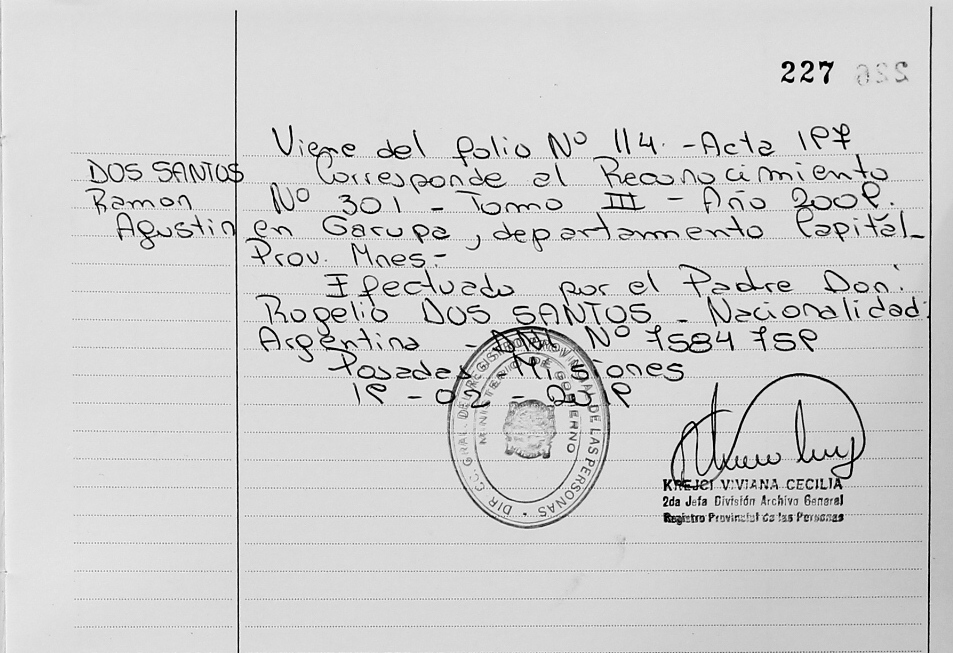 227
Viene del folio Nº 114. - Acta 197
DOS SANTOS
Ramon
Agustin
Corresponde al Reconocimiento
Nº 301 - Tomo III - Año 2009.
en Garupa, departamento Capital -
Prov. Mnes. -
Efectuado por el Padre Don:
Rogelio DOS SANTOS - Nacionalidad:
Argentina - DNI Nº 7584759
Posadas - Misiones
19 - 02 - 2019
DIR. CC. GRAL. DEL REGISTRO PROVINCIAL DE LAS PERSONAS
MINISTERIO DE GOBIERNO
KREJCI VIVIANA CECILIA
2da Jefa División Archivo General
Registro Provincial de las Personas